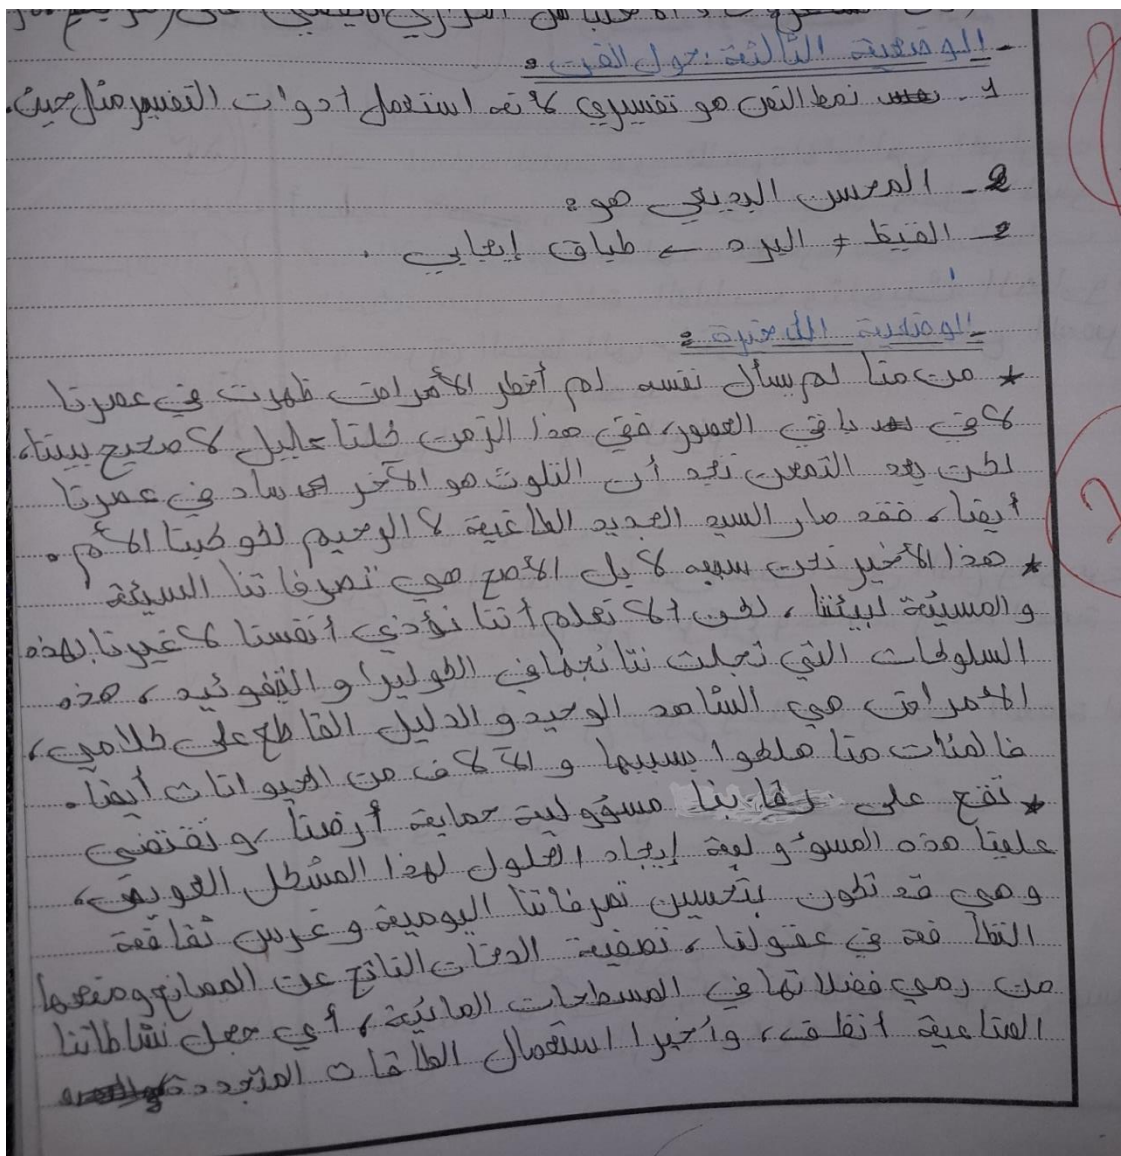 - الوضعية الثالثة: حول الفن:
1- نمط النص هو تفسيري لأنه استعمل أدوات التفسير مثل حيث.
2- المحسن البديعي هو:
- القيظ ≠ البرد ← طباق إيجابي.
- الوضعية الأخيرة:
* من منا لم يسأل نفسه لم أخطر الأمراض ظهرت في عصرنا
لا في باقي العصور، ففي هذا الزمن كلنا عاليل لا صحيح بيننا،
لكن بعد التمعن نجد أن التلوث هو الآخر ساد في عصرنا
أيضا، فقد صار السيد الجديد الطاغية لا الرحيم لكوكبنا الأم.
* هذا الأخير نحن سببه لا بل الأصح هي تصرفاتنا السيئة
و المسيئة لبيئتنا، لكن ألا تعلم أننا نؤذي أنفسنا لا غيرنا بهذه
السلوكات التي تجلت نتائجها في الكوليرا و التيفوئيد، هذه
الأمراض هي الشاهد الوحيد و الدليل القاطع على كلامي،
فالمئات منا هلكوا بسببها و الآلاف من الحيوانات أيضا.
* تقع على رقابنا مسؤولية حماية أرضنا، و تقتضي
علينا هذه المسؤولية إيجاد الحلول لهذا المشكل العويص،
و هي قد تكون بتحسين تصرفاتنا اليومية و غرس ثقافة
النظافة في عقولنا، تصفية الدخان الناتج عن المصانع ومنعها
من رمي فضلاتها في المسطحات المائية، أي جعل نشاطاتنا
الصناعية أنظف، وأخيرا استعمال الطاقات المتجددة